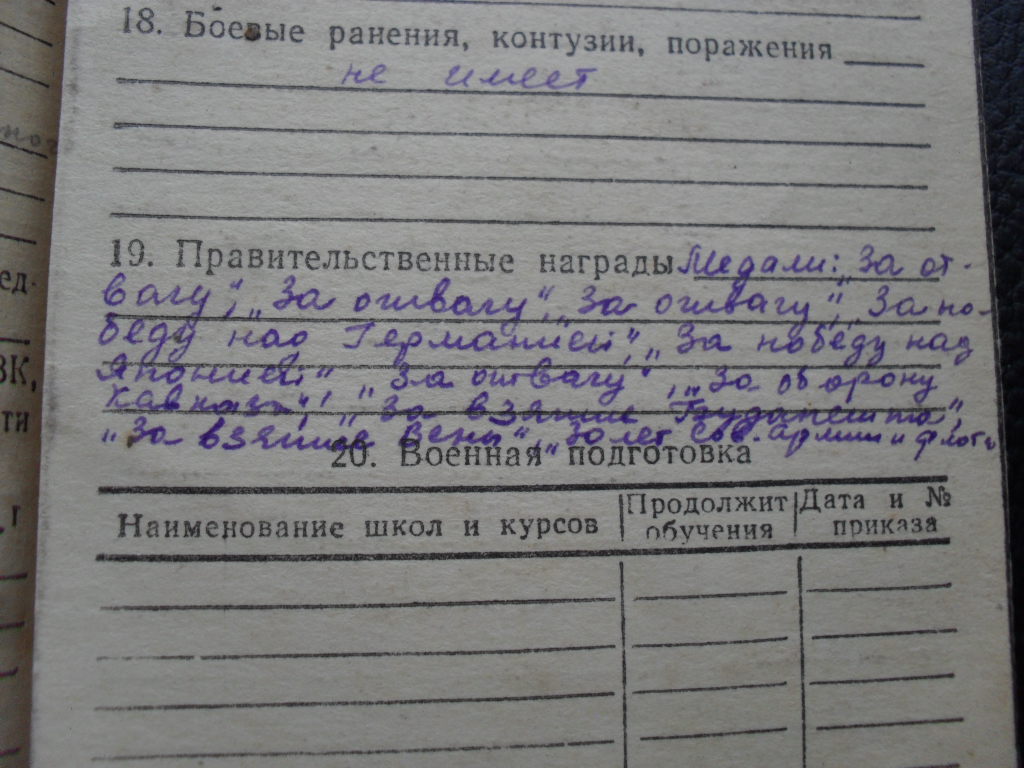 18. Боевые ранения, контузии, поражения
не имеет
19. Правительственные награды Медали: „За от-
вагу“, „За отвагу“, „За отвагу“, „За по-
беду над Германией“, „За победу над
Японией“, „За отвагу“, „За оборону
Кавказа“, „За взятие Будапешта“,
„За взятие Вены“, „30 лет Сов. армии и флота
20. Военная подготовка
Наименование школ и курсов
Продолжит обучения
Дата и № приказа
ног
ед-
ВК,
ти